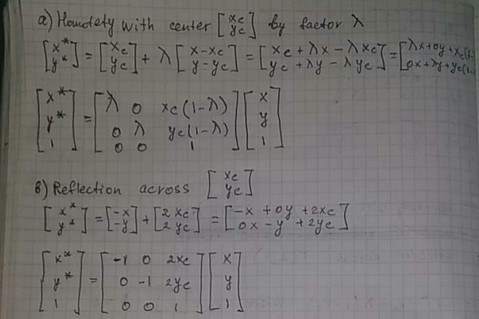 a) Homotety with center [xc yc] by factor λ
[x* y*] = [xc yc] + λ [x-xc y-yc] = [xc + λx - λxc yc + λy - λyc] = [λx+0y+xc(1- 0x+λy+yc(1-
[x* y* 1] = [λ 0 xc(1-λ) 0 λ yc(1-λ) 0 0 1] [x y 1]
b) Reflection across [xc yc]
[x* y*] = [-x -y] + [2xc 2yc] = [-x + 0y + 2xc 0x - y + 2yc]
[x* y* 1] = [-1 0 2xc 0 -1 2yc 0 0 1] [x y 1]